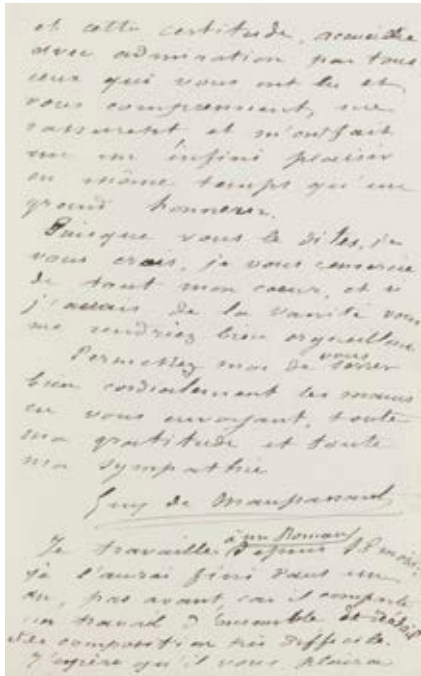 et cette certitude, accueillie
avec admiration par tous
ceux qui vous ont lu et
vous comprennent, me
rassurent et m'ont fait
un infini plaisir
en même temps qu'un
grand honneur.
Puisque vous le dites, je
vous crois, je vous remercie
de tout mon coeur, et si
j'avais de la vanité vous
me rendriez bien orgueilleux
Permettez moi de vous serrer
bien cordialement les mains
en vous envoyant, toute
ma gratitude et toute
ma sympathie
Guy de Maupassant
Je travaille à un Roman depuis 18 mois.
je l'aurai fini dans un
an, pas avant, car il comporte
un travail d'ensemble et détail
de composition très difficile.
J'espère qu'il vous plaira